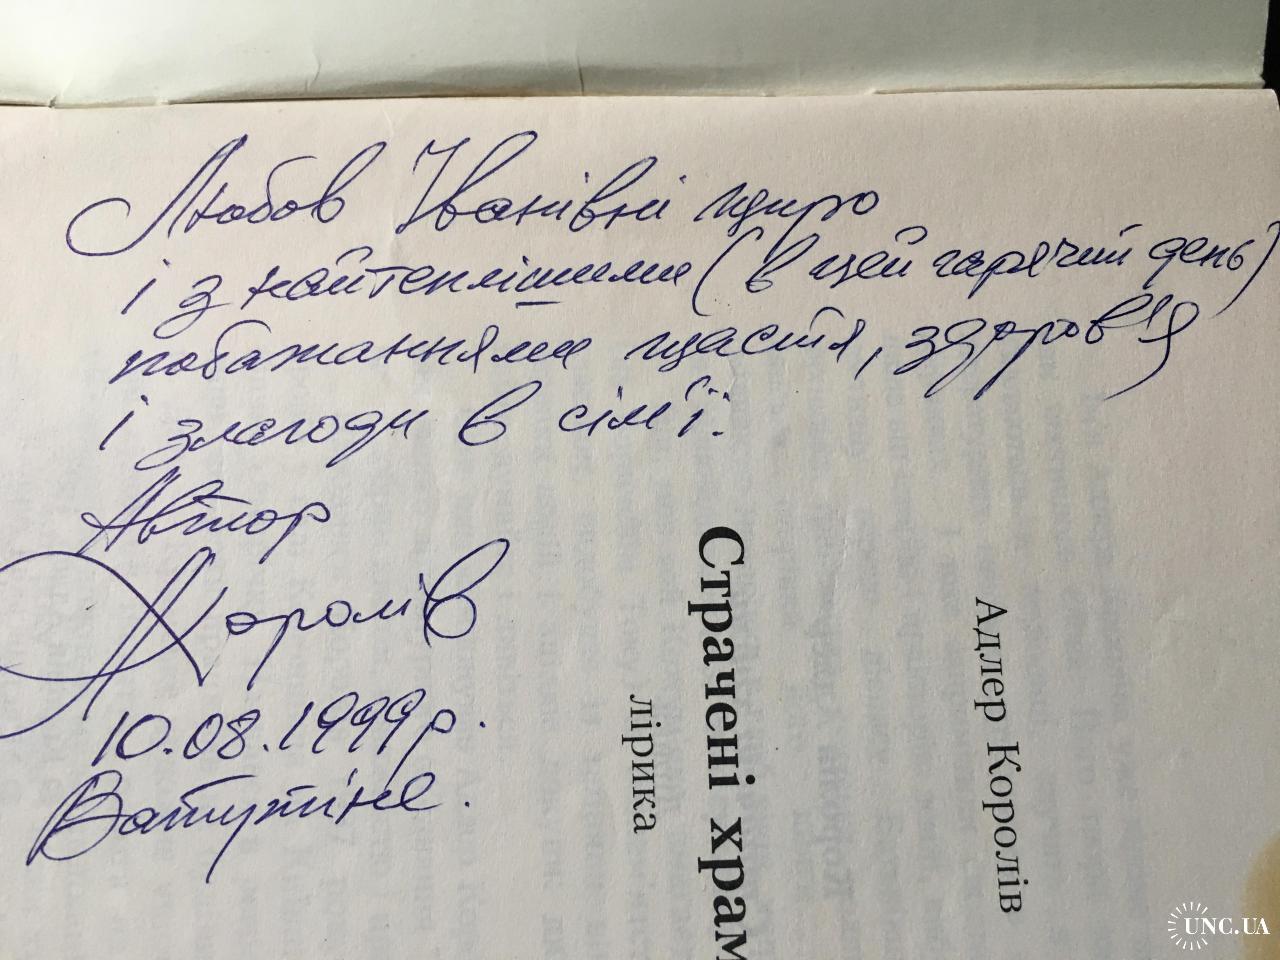 Любов Іванівні щиро
і з найтеплішими (в цей гарячий день)
побажаннями щастя, здоров'я
і злагоди в сім'ї.
Автор
АКоролів
10.08.1999р.
Ватутіне.
Адлер Королів
Страчені храм
лірика
UNC.UA